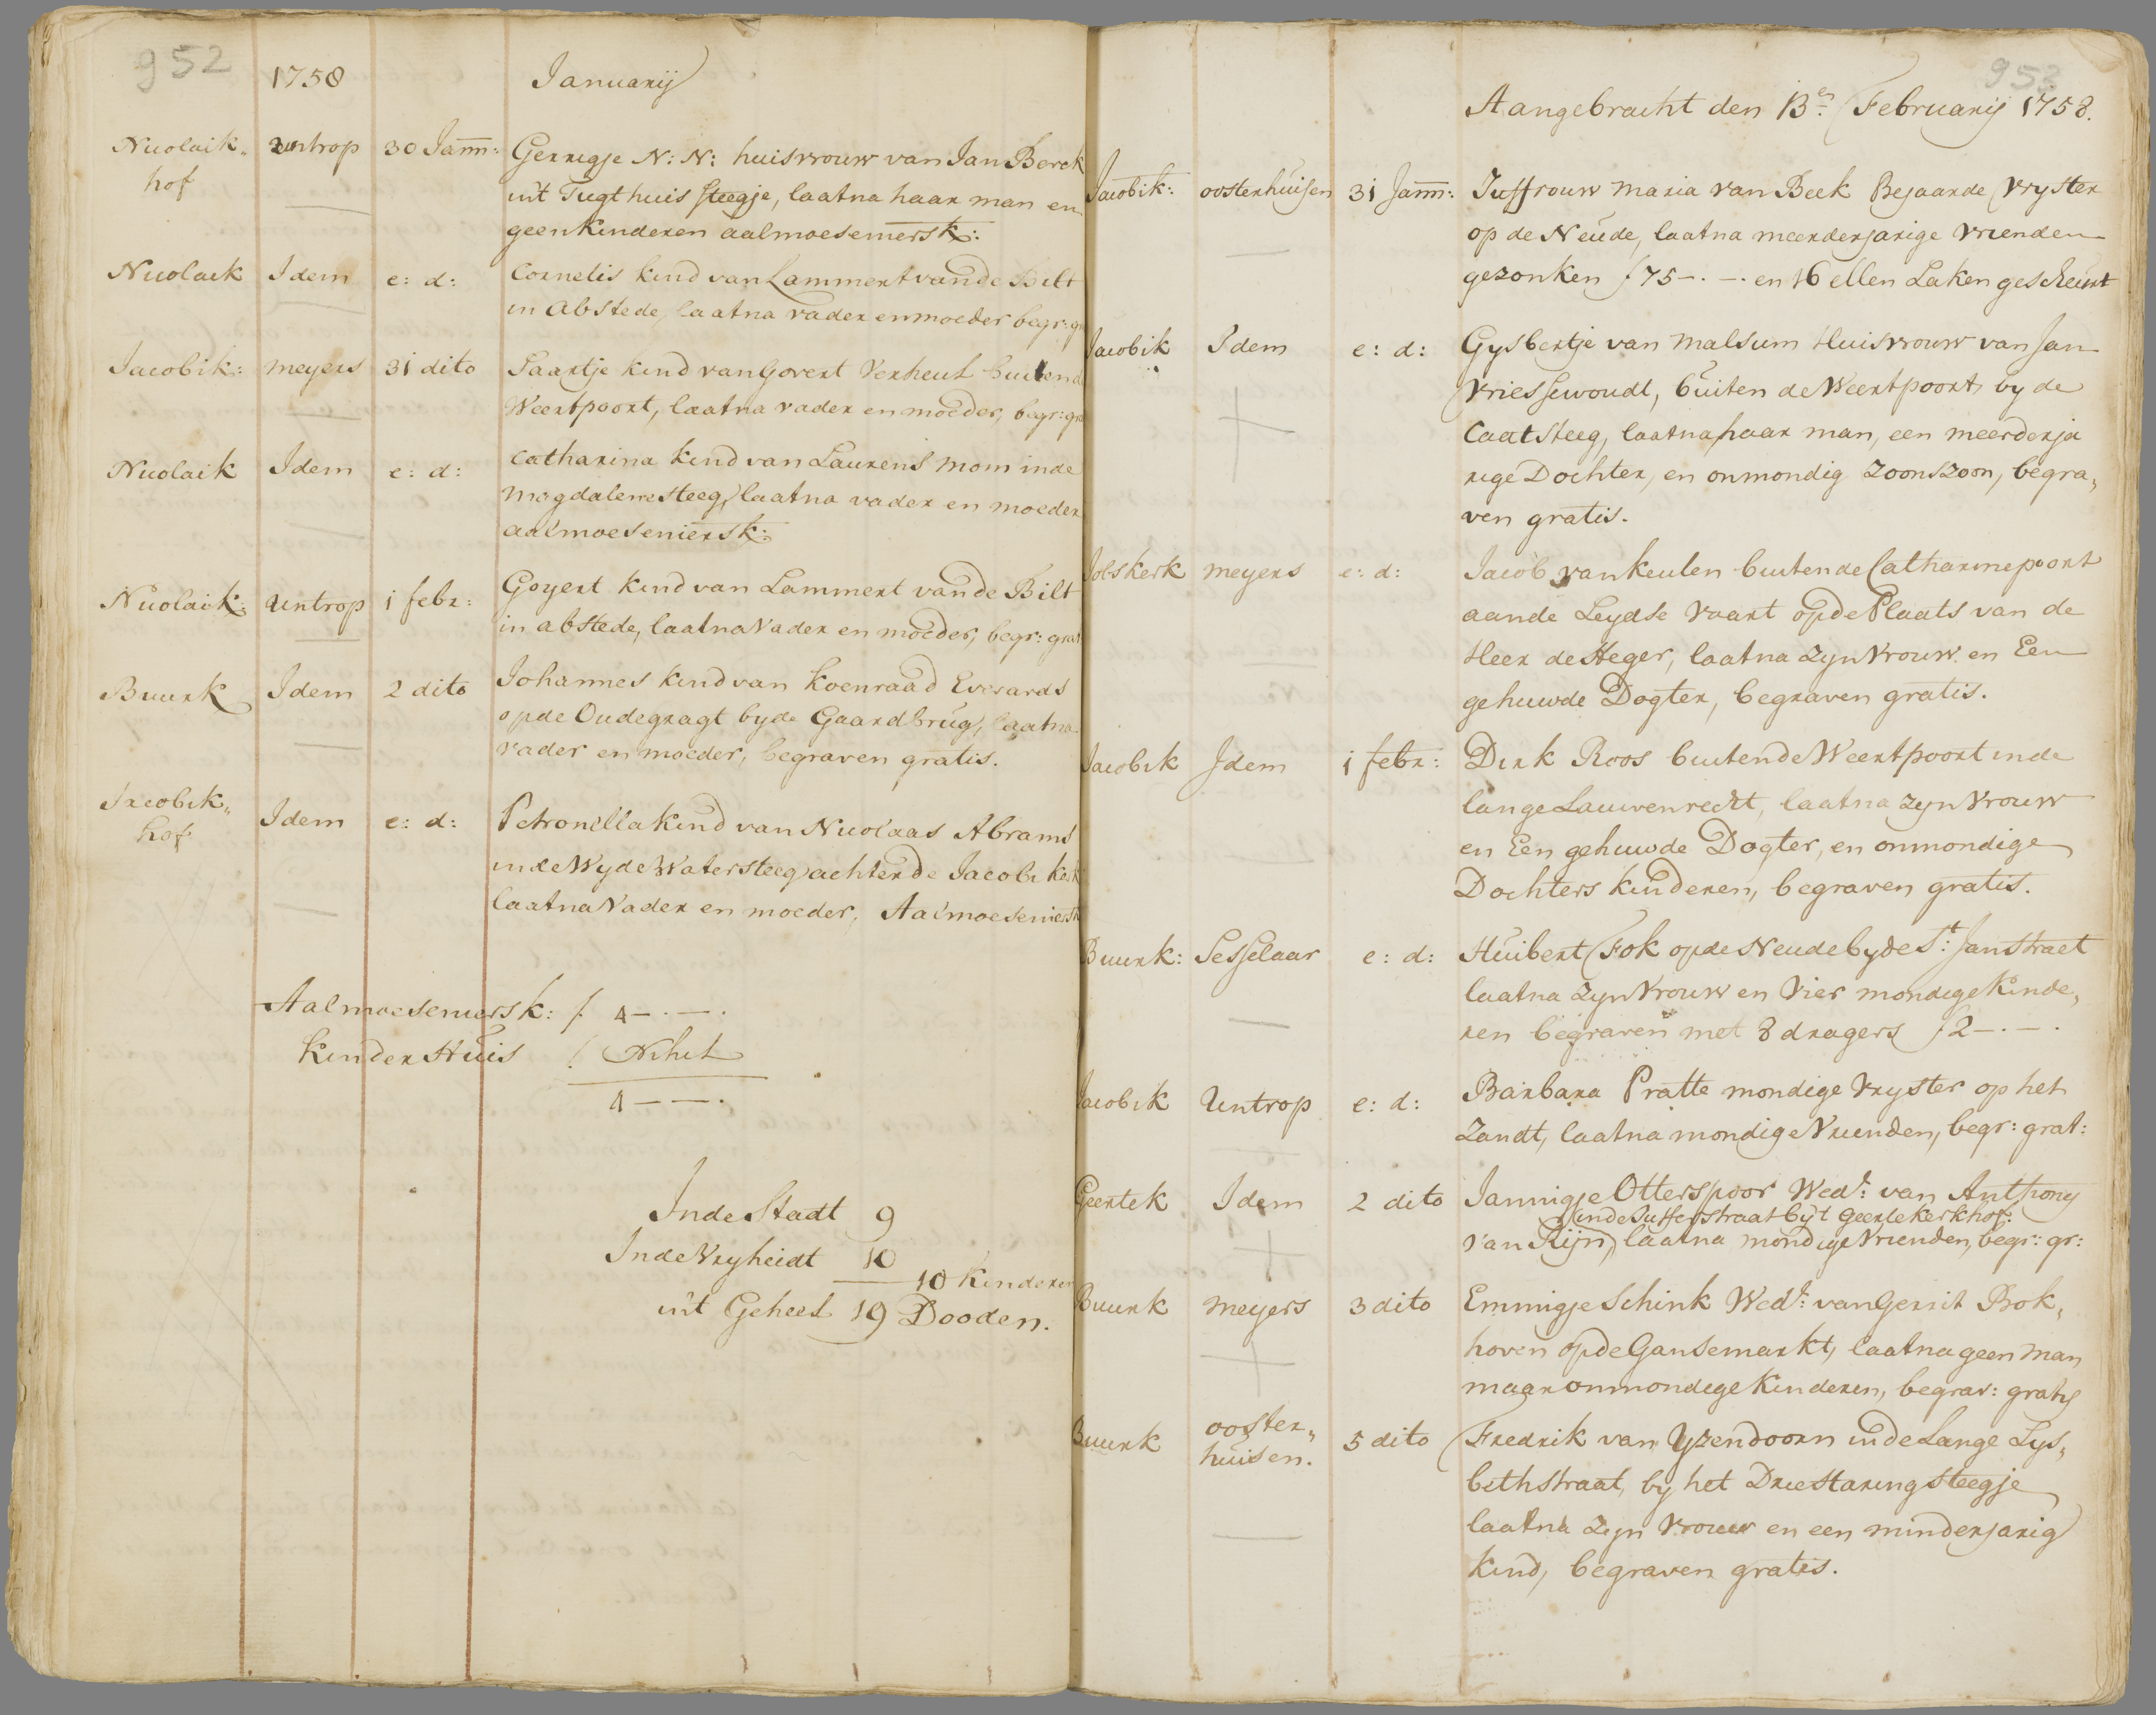 952
1758 Januarij
Nicolaik„ untrop 30 Jann: Gerrigje N: N: huisvrouw van Jan Berck
hof uit Tugthuis steegje, laatna haar man en
geen kinderen aalmoeseniersk:
Nicolaik Idem e: d: Cornelis kind van Lammert vande Bilt
in Abstede, laatna vader en moeder begr: gr
Jacobik: meyers 31 dito Saartje kind van Govert Verheul buitend
Weertpoort, laatna vader en moeder, begr: gra
Nicolaik Idem e: d: Catharina kind van Laurens Mom inde
Magdalenesteeg, laatna vader en moeder
aalmoeseniersk:
Nicolaik: Untrop 1 febr: Goyert kind van Lammert vande Bilt
in abstede, laatna Vader en moeder, begr: grat
Buurk Idem 2 dito Johannes kind van Koenraad Everards
opde Oudegragt byde Gaardbrug, laatna
vader en moeder, begraven gratis.
Jacobik„ Idem e: d: Petronella kind van Nicolaas Abrams
hof inde Wyde Watersteeg achter de Jacobi kerk
laatna Vader en moeder, Aalmoeseniersk
Aalmoeseniersk: ƒ 4 – . – .
Kinder Huis ƒ Nihil
4 – – .
Inde Stadt 9
Inde Vryheidt 10
10 Kinderen
uit Geheel 19 Dooden.
953
Aangebracht den 13en Februarij 1758.
Jacobik: oosterhuisen 31 Jann: Juffrouw Maria van Beek Bejaarde Vryster
op de Neude, laatna meerderjarige vrienden
gezonken ƒ 75 – . – . en 16 ellen Laken gescheurt
Jacobik Idem e: d: Gysbertje van Malsum Huisvrouw van Jan
Vriessewoudt, buiten de Weertpoort by de
Caatsteeg, laatna haar man, een meerderja
rige Dochter, en onmondig Zoons zoon, begra„
ven gratis.
Jobskerk meyers e: d: Jacob van Keulen buitende Catharinepoort
aande Leydse Vaart opde Plaats van de
Heer de Heger, laatna zyn Vrouw en Een
gehuwde Dogter, begraven gratis.
Jacobik Idem 1 febr: Dirk Roos buitende Weertpoort inde
lange Lauwenrecht, laatna zyn Vrouw
en Een gehuwde Dogter, en onmondige
Dochters kinderen, begraven gratis.
Buurk: Sesselaar e: d: Huibert Fok opde Neude byde St: Janstraet
laatna zyn Vrouw en Vier mondige kinde„
ren begraven met 8 dragers ƒ 2 – . – .
Jacobik Untrop e: d: Barbara Pratte mondige Vryster op het
Zandt, laatna mondige Vrienden, begr: grat:
Geertek Idem 2 dito Jannigje Otterspoor Wede: van Anthony
inde Jufferstraat by't Geertekerkhof:
van Rijn, laatna mondige Vrienden, begr: gr:
Buurk meyers 3 dito Emmigje Schink Wede: van Gerrit Brok„
hoven opde Gansemarkt, laatna geen man
maar onmondege kinderen, begrav: gratis
Buurk ooster„ 5 dito Fredrik van Yzendoorn inde Lange Lys„
huisen. bethstraat, by het Drie Haring steegje
laatna zyn Vrouw en een minderjarig
kind, begraven gratis.